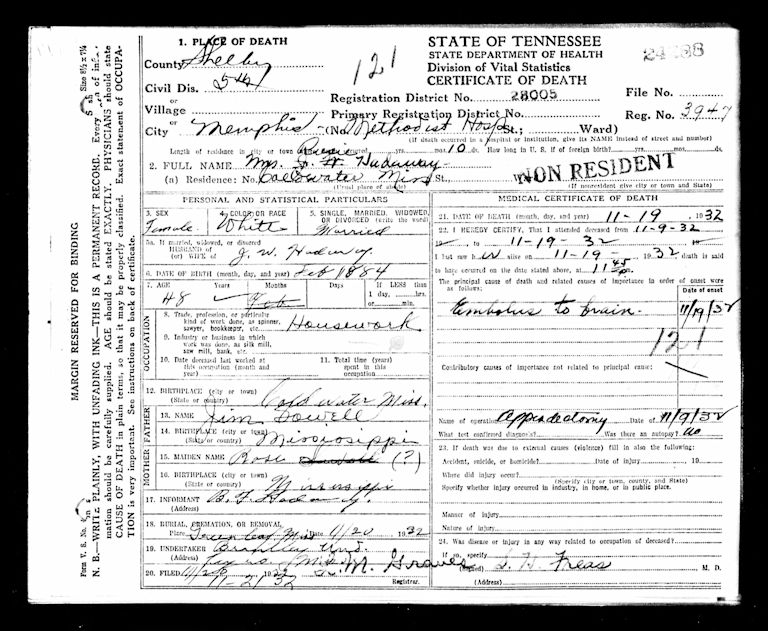 MARGIN RESERVED FOR BINDING
N. B.—WRITE PLAINLY, WITH UNFADING INK—THIS IS A PERMANENT RECORD. Every item of infor-
mation should be carefully supplied. AGE should be stated EXACTLY. PHYSICIANS should state
CAUSE OF DEATH in plain terms, so that it may be properly classified. Exact statement of OCCUPA-
TION is very important. See instructions on back of certificate.
1. PLACE OF DEATH
County Shelby
Civil Dis. 5th
or
Village
or
City Memphis (No. Methodist Hosp St.; Ward)
121
STATE OF TENNESSEE
STATE DEPARTMENT OF HEALTH
Division of Vital Statistics
CERTIFICATE OF DEATH
Registration District No. 28005
File No.
Primary Registration District No.
Reg. No. 3947
(If death occurred in a hospital or institution, give its NAME instead of street and number)
Length of residence in city or town yrs. mos. 10 ds. How long in U. S. if of foreign birth? yrs. mos. ds.
2. FULL NAME Mrs. J. W. Hadaway
(a) Residence: No. Coldwater Miss St.,
NON RESIDENT
(Usual place of abode)
(If nonresident give city or town and State)
PERSONAL AND STATISTICAL PARTICULARS
3. SEX
Female
4. COLOR OR RACE
White
5. SINGLE, MARRIED, WIDOWED, OR DIVORCED (write the word)
Married
5a. If married, widowed, or divorced
HUSBAND of
(or) WIFE of J. W. Hadaway
6. DATE OF BIRTH (month, day, and year) Feb 1884
7. AGE Years Months Days If LESS than
48 Feb 1 day, hrs.
or min.
OCCUPATION
8. Trade, profession, or particular
kind of work done, as spinner,
sawyer, bookkeeper, etc. Housework
9. Industry or business in which
work was done, as silk mill,
saw mill, bank, etc.
10. Date deceased last worked at
this occupation (month and
year)
11. Total time (years)
spent in this
occupation
12. BIRTHPLACE (city or town) Coldwater Miss.
(State or country)
FATHER
13. NAME Jim Sowell
14. BIRTHPLACE (city or town) Mississippi
(State or country)
MOTHER
15. MAIDEN NAME Rose (?)
16. BIRTHPLACE (city or town) Mississippi
(State or country)
17. INFORMANT B. F. Hadaway
(Address)
18. BURIAL, CREMATION, OR REMOVAL
Place Greenleaf Miss Date 11/20 1932
19. UNDERTAKER Brantley Und.
(Address)
20. FILED 11-21-32 M. Graves
Registrar.
MEDICAL CERTIFICATE OF DEATH
21. DATE OF DEATH (month, day, and year) 11-19, 1932
22. I HEREBY CERTIFY, That I attended deceased from 11-9-32
19 , to 11-19-32 19
I last saw her alive on 11-19- 1932 death is said
to have occurred on the date stated above, at 11 45 p m.
The principal cause of death and related causes of importance in order of onset were
as follows:
Date of onset
Embolus to brain. 11/19/32
121
Contributory causes of importance not related to principal cause:
Name of operation Appendectomy Date of 11/9/32
What test confirmed diagnosis? Was there an autopsy? no
23. If death was due to external causes (violence) fill in also the following:
Accident, suicide, or homicide? Date of injury , 19
Where did injury occur?
(Specify city or town, county, and State)
Specify whether injury occurred in industry, in home, or in public place.
Manner of injury
Nature of injury
24. Was disease or injury in any way related to occupation of deceased?
If so, specify
(Signed) M. D.
(Address)